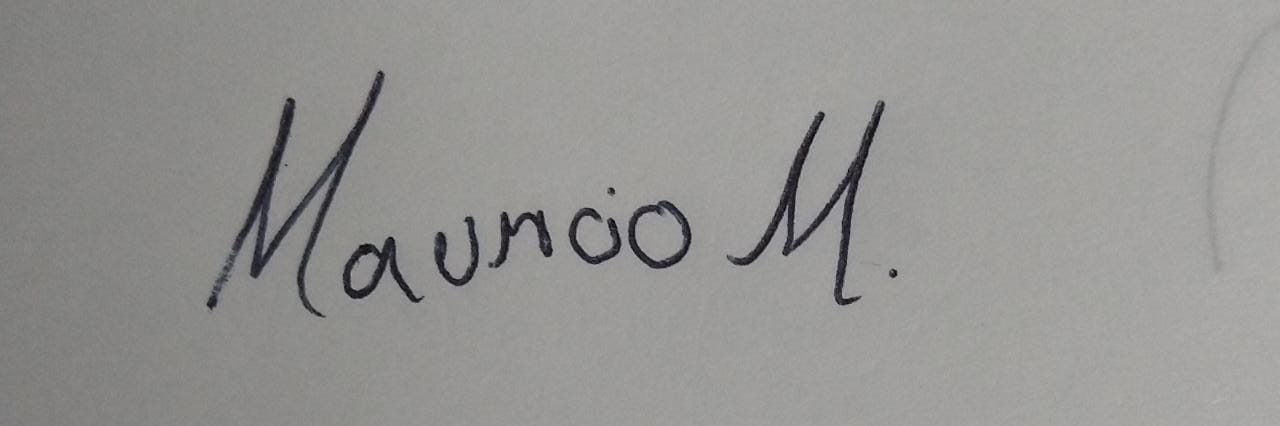 Mauricio M.